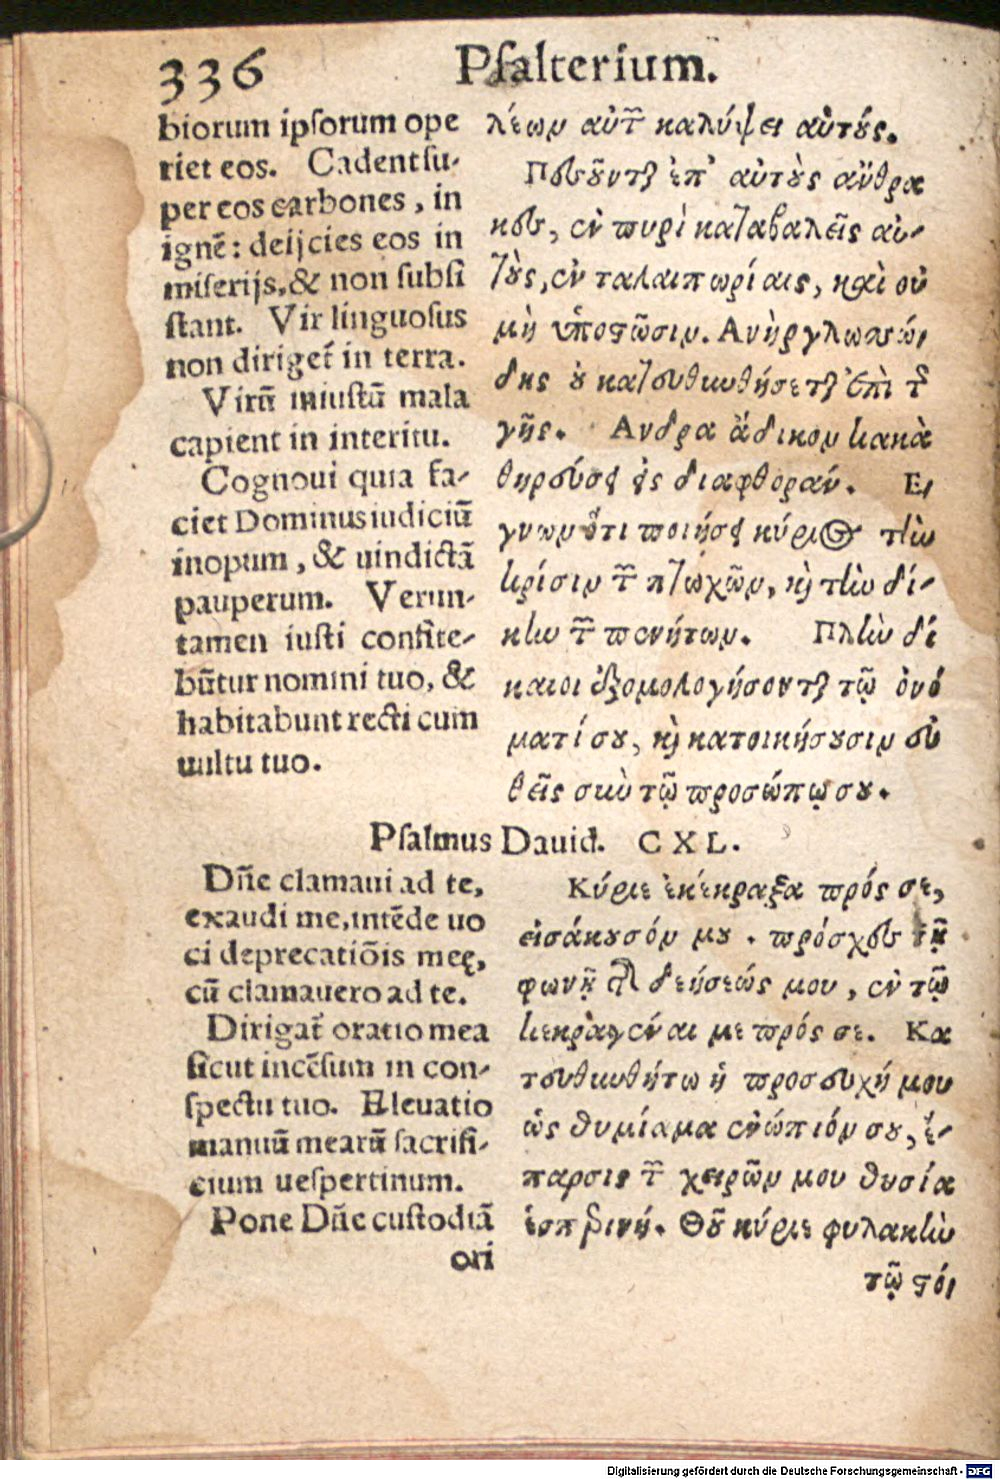 336 Psalterium.
biorum ipsorum ope
riet eos. Cadent su-
per eos carbones, in
ignē: deijcies eos in
miserijs, & non subsi
stant. Vir linguosus
non diriget̃ in terra.
Virū iniustū mala
capient in interitu.
Cognoui quia fa-
ciet Dominus iudiciū
inopum, & uindictā
pauperum. Verun-
tamen iusti confite-
būtur nomini tuo, &
habitabunt recti cum
uultu tuo.
λέων αὐτῶν καλύψει αὐτούς.
Πεσοῦνται ἐπ' αὐτοὺς ἄνθρα
κες, ἐν πυρὶ καταβαλεῖς αὐ-
τοὺς, ἐν ταλαιπωρίαις, καὶ οὐ
μὴ ὑποστῶσιν. Ανὴρ γλωσσώ-
δης οὐ κατευθυνθήσεται ἐπὶ τῆς
γῆς. Ανδρα ἄδικον κακὰ
θηρεύσει εἰς διαφθοράν. Ε-
γνων ὅτι ποιήσει κύριος τὴν
κρίσιν τῶν πτωχῶν, καὶ τὴν δί-
κην τῶν πενήτων. Πλὴν δί
καιοι ἐξομολογήσονται τῷ ὀνό
ματί σου, καὶ κατοικήσουσιν εὐ
θεῖς σὺν τῷ προσώπῳ σου.
Psalmus Dauid. CXL.
Dñe clamaui ad te,
exaudi me, intēde uo
ci deprecatiōis meę,
cū clamauero ad te.
Dirigat̃ oratio mea
sicut incēsum in con-
spectu tuo. Eleuatio
manuū mearū sacrifi-
cium uespertinum.
Pone Dñe custodiā
ori
Κύριε ἐκέκραξα πρός σε,
εἰσάκουσόν μου. πρόσχες τῇ
φωνῇ τῆς δεήσεώς μου, ἐν τῷ
κεκραγέναι με πρός σε. Κα
τευθυνθήτω ἡ προσευχή μου
ὡς θυμίαμα ἐνώπιόν σου, ἔ-
παρσις τῶν χειρῶν μου θυσία
ἑσπερινή. Θοῦ κύριε φυλακὴν
τῷ στό-
Digitalisierung gefördert durch die Deutsche Forschungsgemeinschaft - DFG